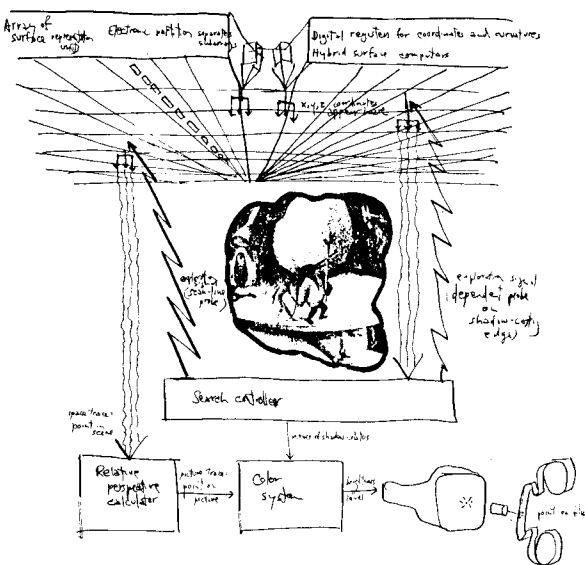 Array of
surface representation
units
Electronic partition separates
Digital registers for coordinates and curvatures
Hybrid surface computers
x, y, z coordinates
appear here
(scan-line
probe)
exploration signal
(dependent probe
on
shadow-casting
edge)
Search controller
space trace-
point in
scene
Relative
perspective
calculator
picture trace-
point on
picture
Color
system
brightness
level
point on film